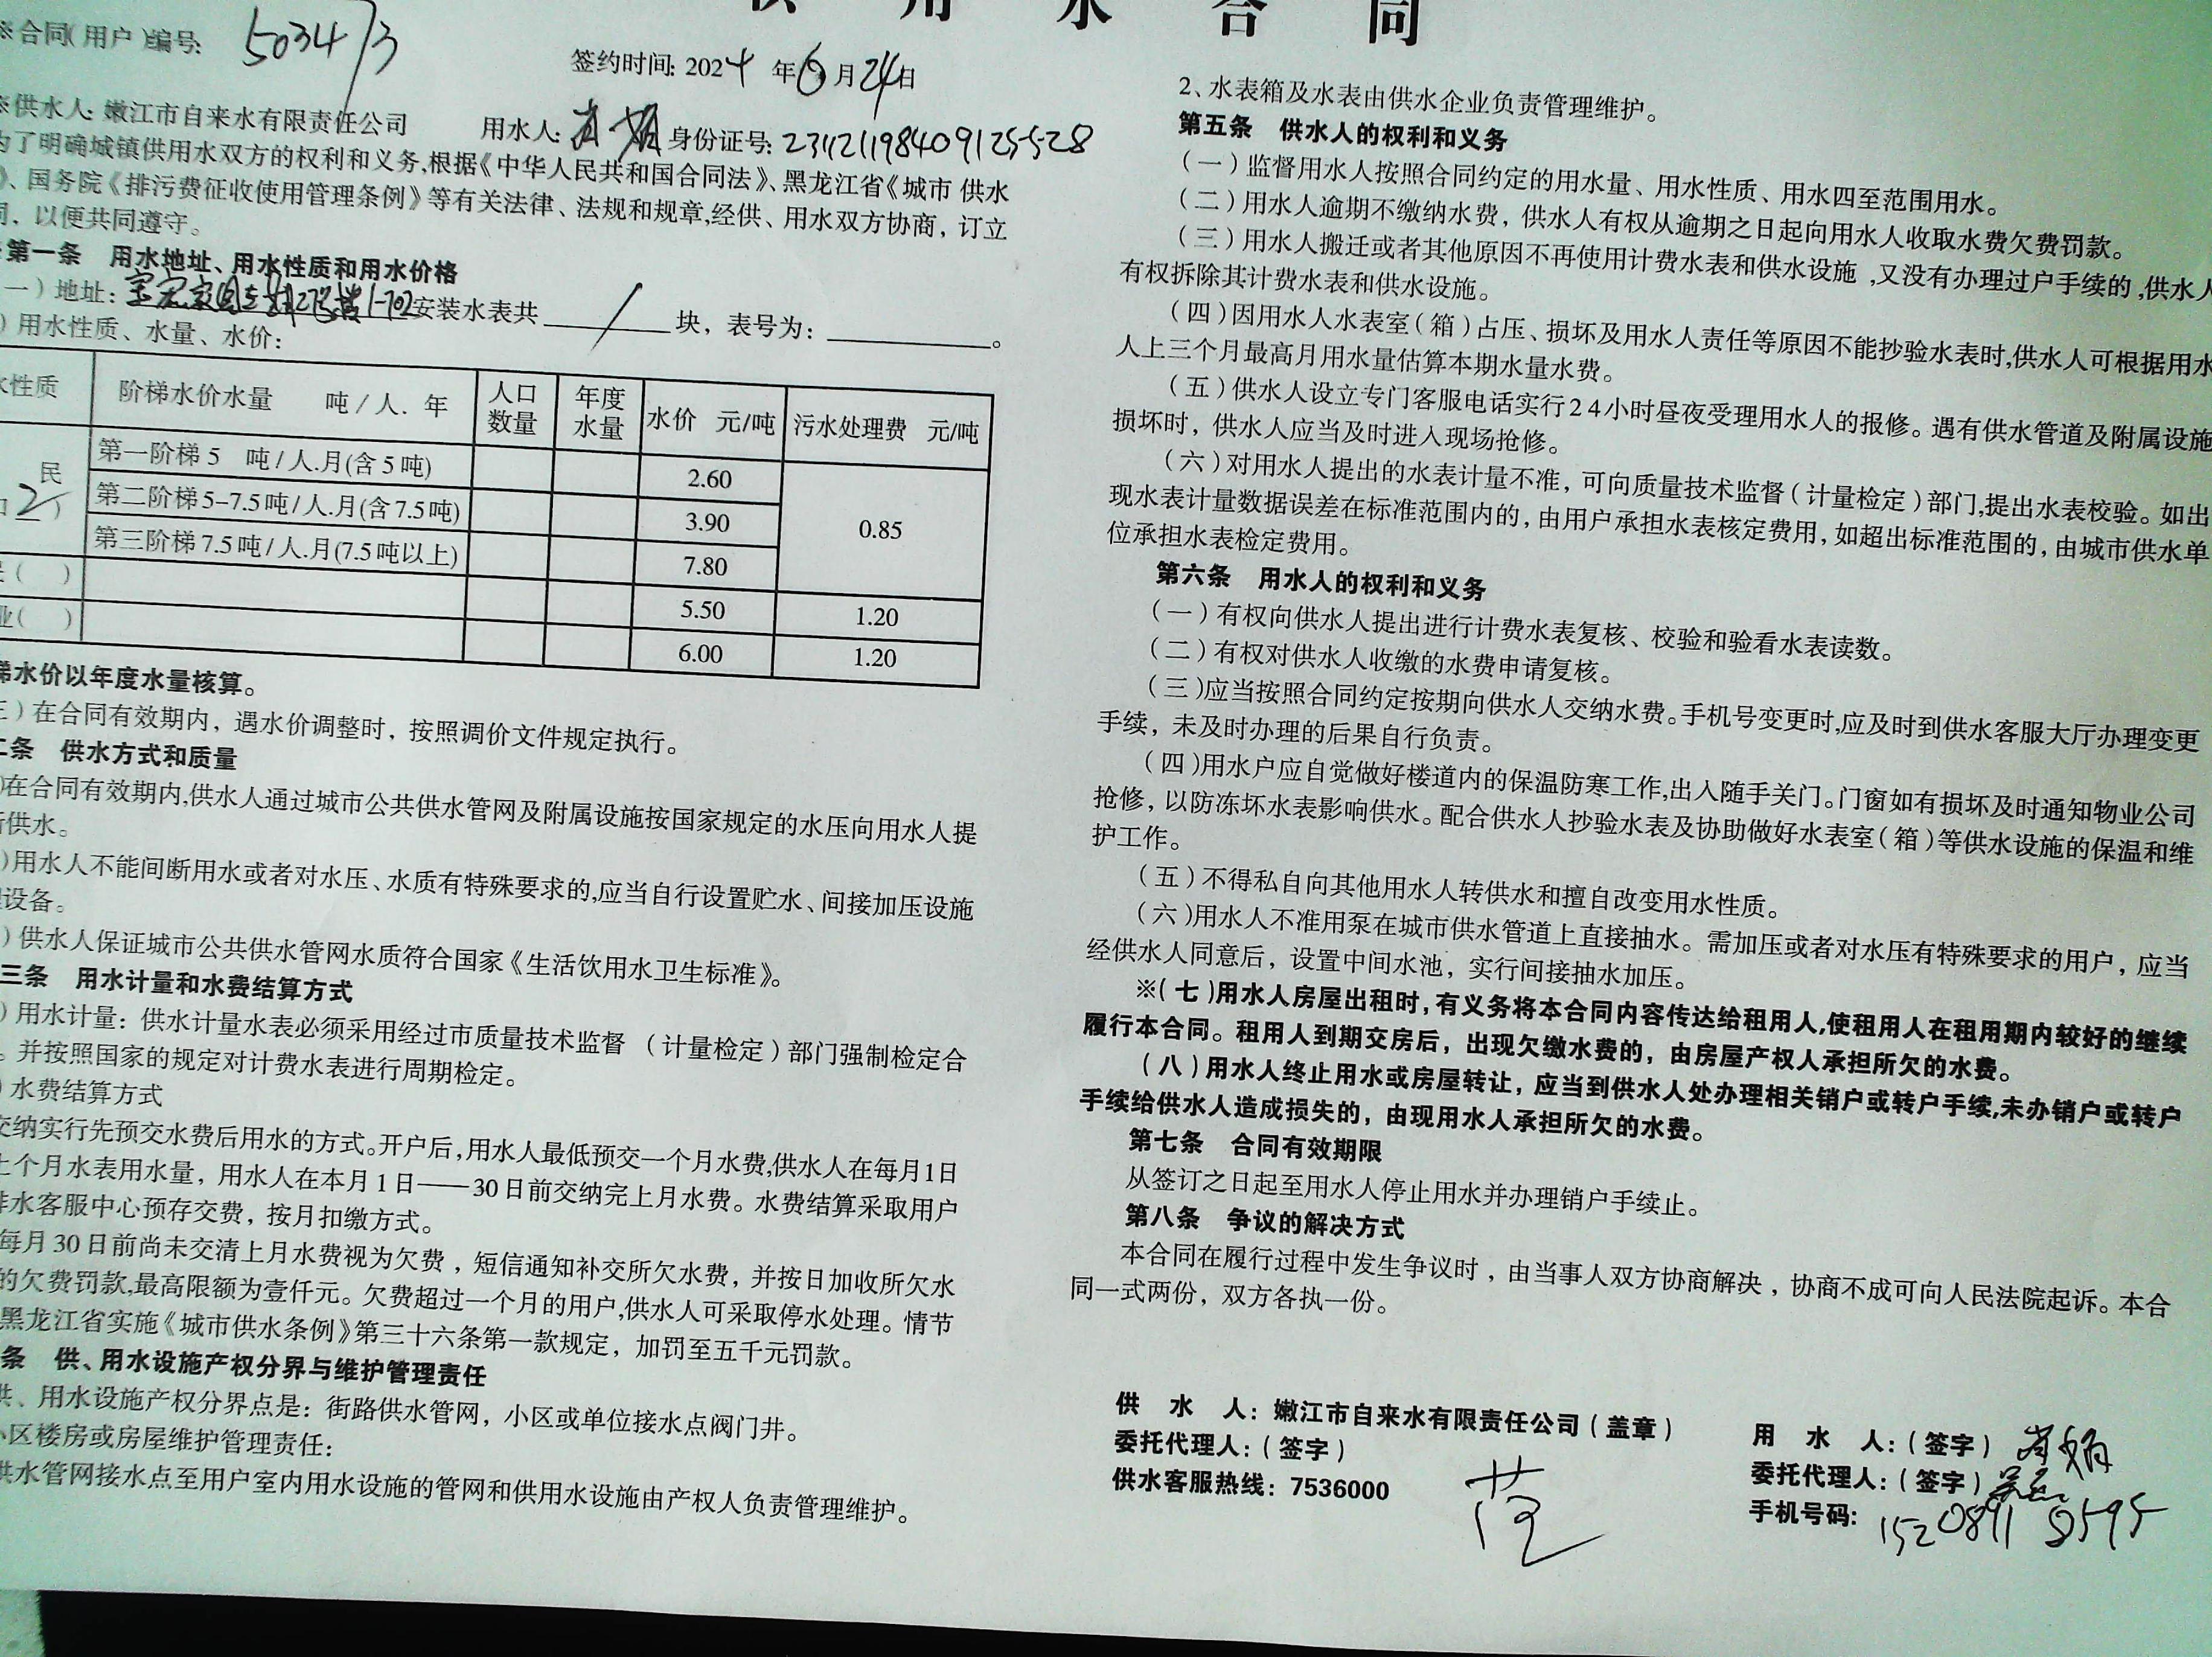 供 用 水 合 同
※合同(用户)编号: 503473
签约时间: 2024 年 6 月 24 日
※供水人: 嫩江市自来水有限责任公司 用水人: 肖娟 身份证号: 231121198409125528
为了明确城镇供用水双方的权利和义务,根据《中华人民共和国合同法》、黑龙江省《城市 供水
》、国务院《排污费征收使用管理条例》等有关法律、法规和规章,经供、用水双方协商，订立
同，以便共同遵守。
第一条 用水地址、用水性质和用水价格
一）地址: 1-702 安装水表共 / 块，表号为: 。
）用水性质、水量、水价:
水性质 阶梯水价水量 吨/人.年 人口数量 年度水量 水价 元/吨 污水处理费 元/吨
民 第一阶梯 5 吨/人.月(含 5 吨) 2.60 0.85
2 ） 第二阶梯 5-7.5吨/人.月(含 7.5吨) 3.90
第三阶梯 7.5吨/人.月(7.5吨以上) 7.80
( ) 5.50 1.20
业( ) 6.00 1.20
梯水价以年度水量核算。
三）在合同有效期内，遇水价调整时，按照调价文件规定执行。
二条 供水方式和质量
)在合同有效期内,供水人通过城市公共供水管网及附属设施按国家规定的水压向用水人提
供水。
)用水人不能间断用水或者对水压、水质有特殊要求的,应当自行设置贮水、间接加压设施
设备。
）供水人保证城市公共供水管网水质符合国家《生活饮用水卫生标准》。
三条 用水计量和水费结算方式
）用水计量：供水计量水表必须采用经过市质量技术监督 （计量检定）部门强制检定合
。并按照国家的规定对计费水表进行周期检定。
）水费结算方式
交纳实行先预交水费后用水的方式。开户后,用水人最低预交一个月水费,供水人在每月1日
上个月水表用水量，用水人在本月 1 日——30 日前交纳完上月水费。水费结算采取用户
排水客服中心预存交费，按月扣缴方式。
每月 30 日前尚未交清上月水费视为欠费，短信通知补交所欠水费，并按日加收所欠水
的欠费罚款,最高限额为壹仟元。欠费超过一个月的用户,供水人可采取停水处理。情节
黑龙江省实施《城市供水条例》第三十六条第一款规定，加罚至五千元罚款。
条 供、用水设施产权分界与维护管理责任
供、用水设施产权分界点是：街路供水管网，小区或单位接水点阀门井。
小区楼房或房屋维护管理责任:
供水管网接水点至用户室内用水设施的管网和供用水设施由产权人负责管理维护。
2、水表箱及水表由供水企业负责管理维护。
第五条 供水人的权利和义务
（一）监督用水人按照合同约定的用水量、用水性质、用水四至范围用水。
（二）用水人逾期不缴纳水费，供水人有权从逾期之日起向用水人收取水费欠费罚款。
（三）用水人搬迁或者其他原因不再使用计费水表和供水设施,又没有办理过户手续的,供水人
有权拆除其计费水表和供水设施。
（四)因用水人水表室（箱）占压、损坏及用水人责任等原因不能抄验水表时,供水人可根据用水
人上三个月最高月用水量估算本期水量水费。
（五）供水人设立专门客服电话实行24小时昼夜受理用水人的报修。遇有供水管道及附属设施
损坏时，供水人应当及时进入现场抢修。
（六)对用水人提出的水表计量不准，可向质量技术监督（计量检定）部门,提出水表校验。如出
现水表计量数据误差在标准范围内的，由用户承担水表核定费用，如超出标准范围的，由城市供水单
位承担水表检定费用。
第六条 用水人的权利和义务
（一）有权向供水人提出进行计费水表复核、校验和验看水表读数。
（二）有权对供水人收缴的水费申请复核。
（三)应当按照合同约定按期向供水人交纳水费。手机号变更时,应及时到供水客服大厅办理变更
手续，未及时办理的后果自行负责。
（四)用水户应自觉做好楼道内的保温防寒工作,出入随手关门。门窗如有损坏及时通知物业公司
抢修，以防冻坏水表影响供水。配合供水人抄验水表及协助做好水表室（箱）等供水设施的保温和维
护工作。
（五）不得私自向其他用水人转供水和擅自改变用水性质。
（六)用水人不准用泵在城市供水管道上直接抽水。需加压或者对水压有特殊要求的用户，应当
经供水人同意后，设置中间水池，实行间接抽水加压。
※（七)用水人房屋出租时,有义务将本合同内容传达给租用人,使租用人在租用期内较好的继续
履行本合同。租用人到期交房后，出现欠缴水费的，由房屋产权人承担所欠的水费。
（八）用水人终止用水或房屋转让，应当到供水人处办理相关销户或转户手续,未办销户或转户
手续给供水人造成损失的，由现用水人承担所欠的水费。
第七条 合同有效期限
从签订之日起至用水人停止用水并办理销户手续止。
第八条 争议的解决方式
本合同在履行过程中发生争议时，由当事人双方协商解决，协商不成可向人民法院起诉。本合
同一式两份，双方各执一份。
供 水 人: 嫩江市自来水有限责任公司（盖章）
委托代理人:（签字）
供水客服热线: 7536000
范
用 水 人:（签字） 肖娟
委托代理人:（签字）
手机号码: 15208918595